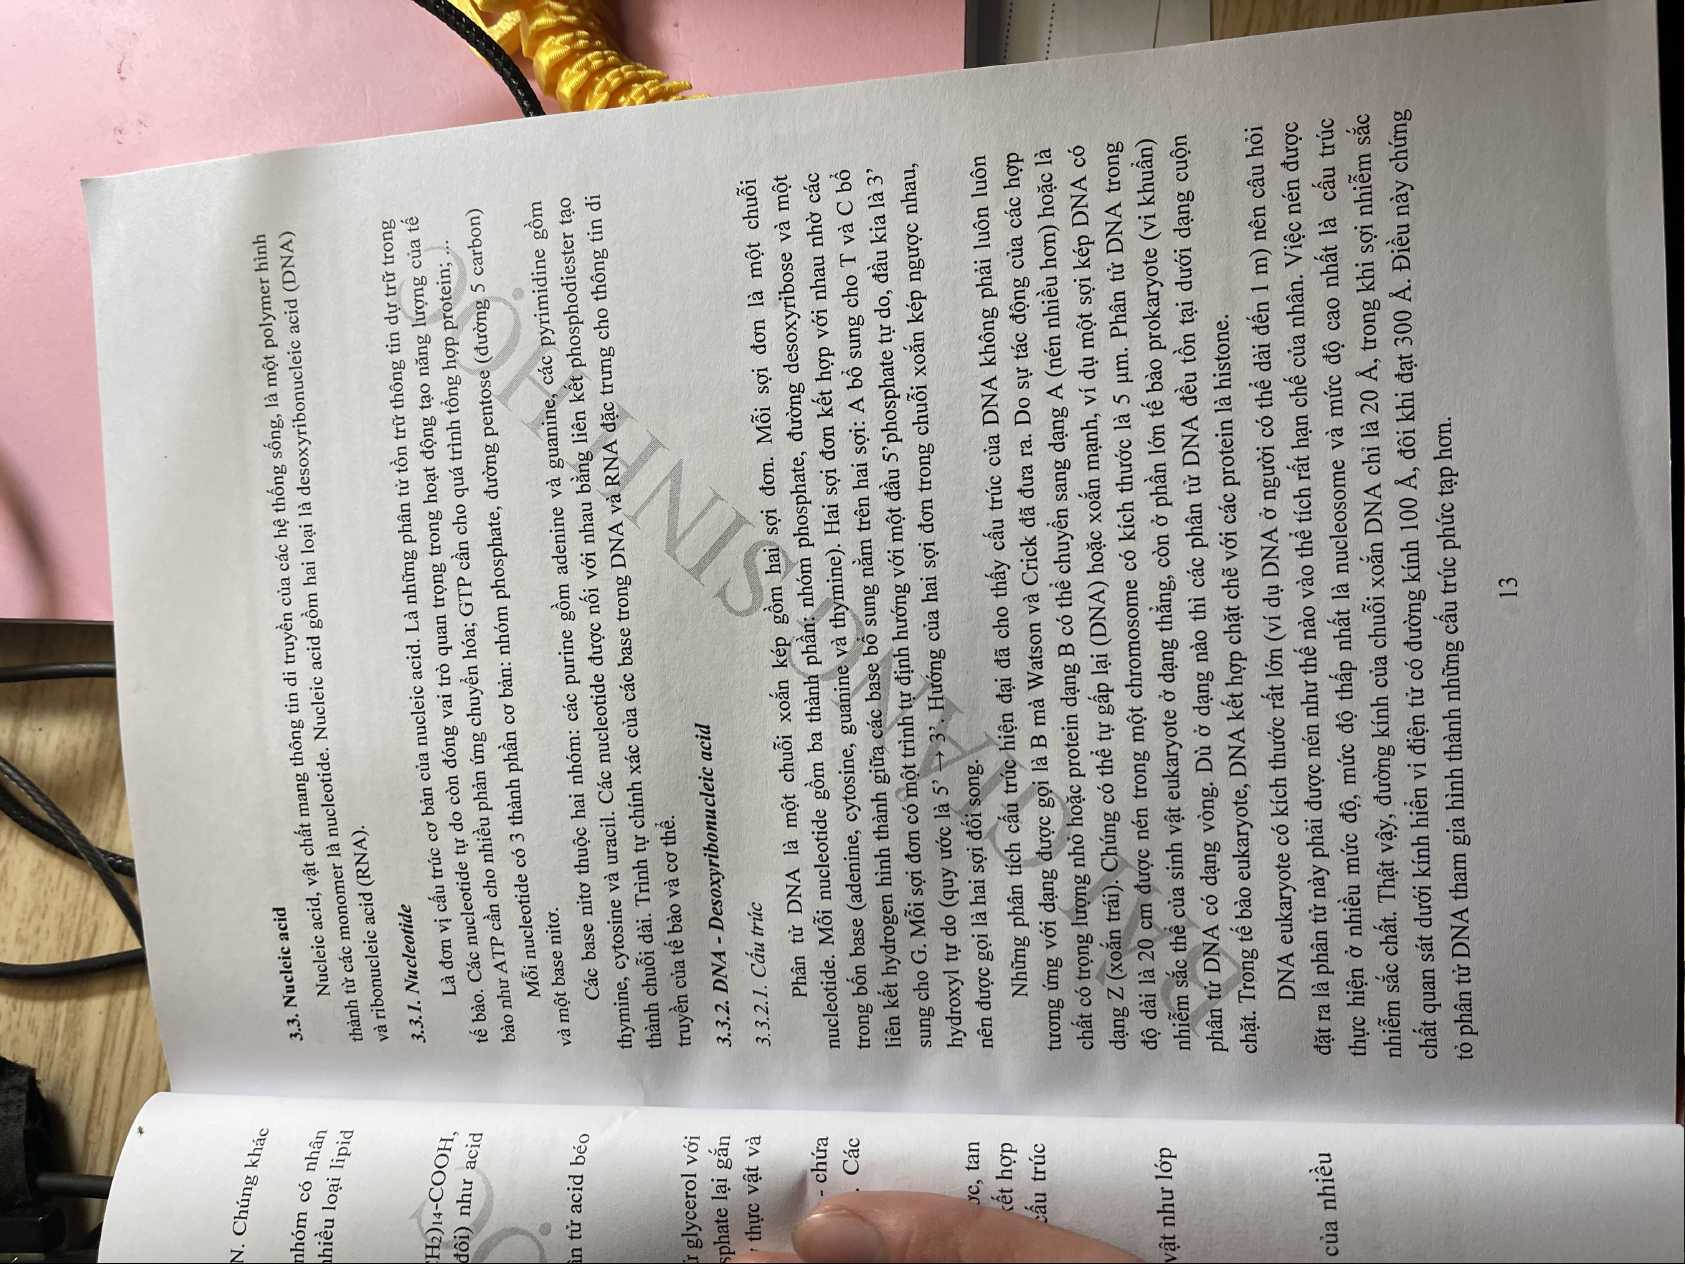 N. Chúng khác
nhóm có nhân
nhiều loại lipid
H₂)₁₄-COOH,
đôi) như acid
ân tử acid béo
glycerol với
sphate lại gắn
thực vật và
- chứa
. Các
ớc, tan
kết hợp
cấu trúc
vật như lớp
của nhiều
3.3. Nucleic acid
Nucleic acid, vật chất mang thông tin di truyền của các hệ thống sống, là một polymer hình
thành từ các monomer là nucleotide. Nucleic acid gồm hai loại là desoxyribonucleic acid (DNA)
và ribonucleic acid (RNA).
3.3.1. Nucleotide
Là đơn vị cấu trúc cơ bản của nucleic acid. Là những phân tử tồn trữ thông tin dự trữ trong
tế bào. Các nucleotide tự do còn đóng vai trò quan trọng trong hoạt động tạo năng lượng của tế
bào như ATP cần cho nhiều phản ứng chuyển hóa; GTP cần cho quá trình tổng hợp protein; ...
Mỗi nucleotide có 3 thành phần cơ bản: nhóm phosphate, đường pentose (đường 5 carbon)
và một base nitơ.
Các base nitơ thuộc hai nhóm: các purine gồm adenine và guanine, các pyrimidine gồm
thymine, cytosine và uracil. Các nucleotide được nối với nhau bằng liên kết phosphodiester tạo
thành chuỗi dài. Trình tự chính xác của các base trong DNA và RNA đặc trưng cho thông tin di
truyền của tế bào và cơ thể.
3.3.2. DNA - Desoxyribonucleic acid
3.3.2.1. Cấu trúc
Phân tử DNA là một chuỗi xoắn kép gồm hai sợi đơn. Mỗi sợi đơn là một chuỗi
nucleotide. Mỗi nucleotide gồm ba thành phần: nhóm phosphate, đường desoxyribose và một
trong bốn base (adenine, cytosine, guanine và thymine). Hai sợi đơn kết hợp với nhau nhờ các
liên kết hydrogen hình thành giữa các base bổ sung nằm trên hai sợi: A bổ sung cho T và C bổ
sung cho G. Mỗi sợi đơn có một trình tự định hướng với một đầu 5’phosphate tự do, đầu kia là 3’
hydroxyl tự do (quy ước là 5’ → 3’. Hướng của hai sợi đơn trong chuỗi xoắn kép ngược nhau,
nên được gọi là hai sợi đối song.
Những phân tích cấu trúc hiện đại đã cho thấy cấu trúc của DNA không phải luôn luôn
tương ứng với dạng được gọi là B mà Watson và Crick đã đưa ra. Do sự tác động của các hợp
chất có trọng lượng nhỏ hoặc protein dạng B có thể chuyển sang dạng A (nén nhiều hơn) hoặc là
dạng Z (xoắn trái). Chúng có thể tự gấp lại (DNA) hoặc xoắn mạnh, ví dụ một sợi kép DNA có
độ dài là 20 cm được nén trong một chromosome có kích thước là 5 µm. Phân tử DNA trong
nhiễm sắc thể của sinh vật eukaryote ở dạng thẳng, còn ở phần lớn tế bào prokaryote (vi khuẩn)
phân tử DNA có dạng vòng. Dù ở dạng nào thì các phân tử DNA đều tồn tại dưới dạng cuộn
chặt. Trong tế bào eukaryote, DNA kết hợp chặt chẽ với các protein là histone.
DNA eukaryote có kích thước rất lớn (ví dụ DNA ở người có thể dài đến 1 m) nên câu hỏi
đặt ra là phân tử này phải được nén như thế nào vào thể tích rất hạn chế của nhân. Việc nén được
thực hiện ở nhiều mức độ, mức độ thấp nhất là nucleosome và mức độ cao nhất là cấu trúc
nhiễm sắc chất. Thật vậy, đường kính của chuỗi xoắn DNA chỉ là 20 Å, trong khi sợi nhiễm sắc
chất quan sát dưới kính hiển vi điện tử có đường kính 100 Å, đôi khi đạt 300 Å. Điều này chứng
tỏ phân tử DNA tham gia hình thành những cấu trúc phức tạp hơn.
13
BÀI GIẢNG SINH HỌC